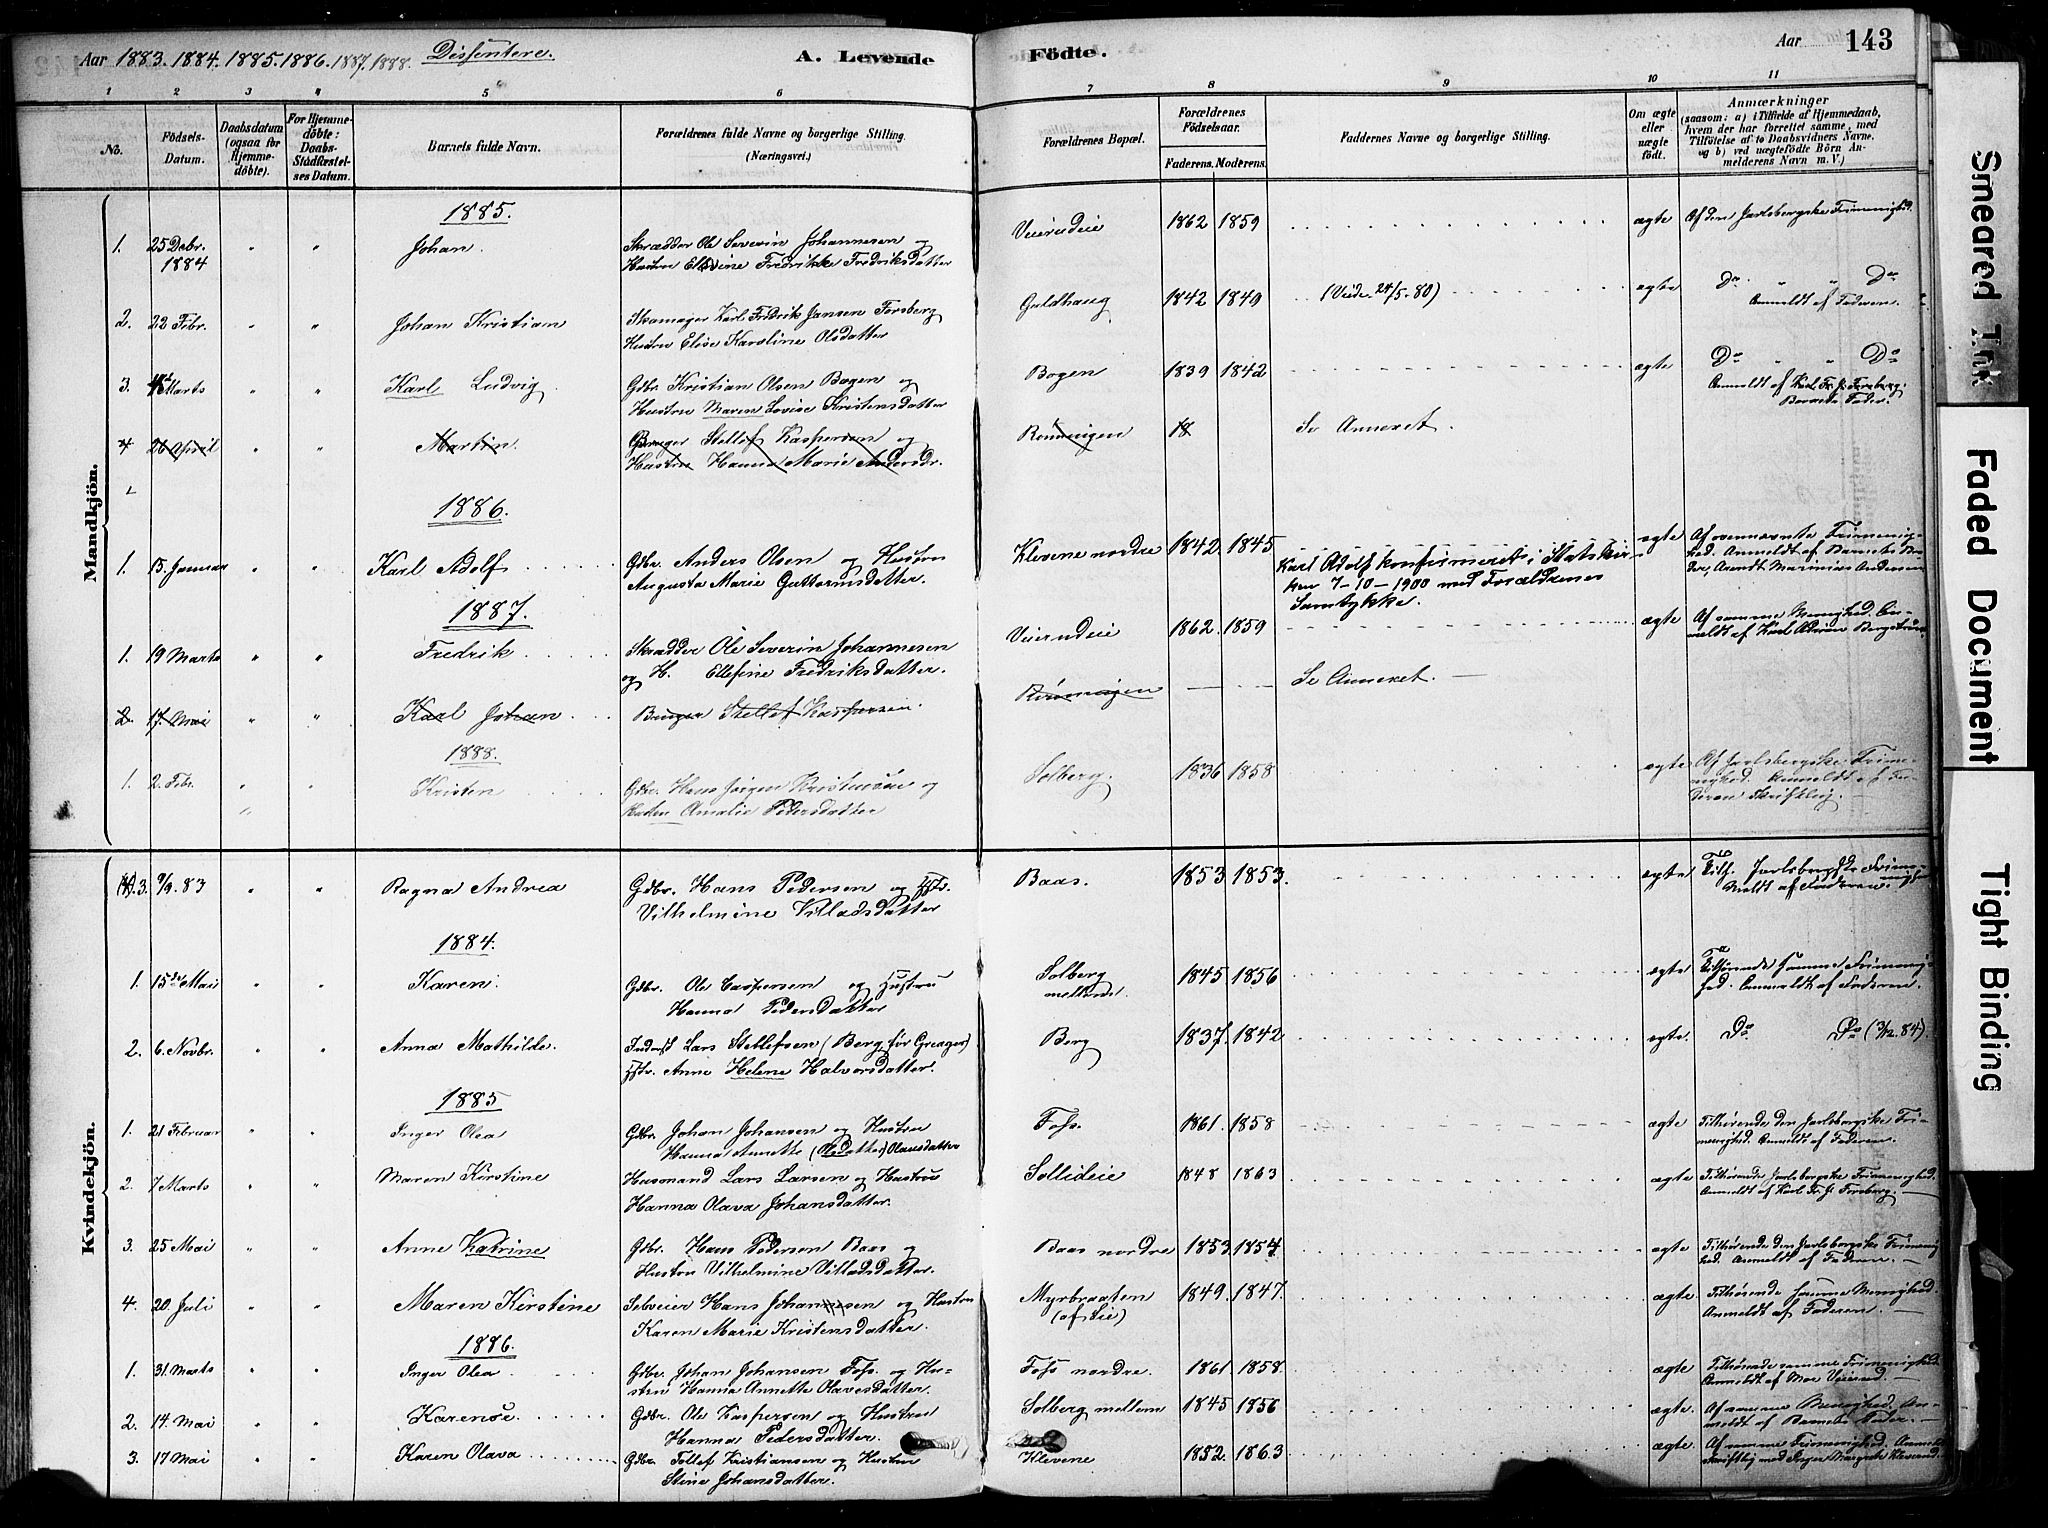 Aar 1883. 1884. 1885. 1886. 1887. 1888. Dissentere. A. Levende Födte. Aar 143
1 2 3 4 5 6 7 8 9 10 11
No. Födsels-Datum. Daabsdatum (ogsaa for Hjemmedöbte). For Hjemmedöbte: Daabs-Stadfæstelses Datum. Barnets fulde Navn. Forældrenes fulde Navne og borgerlige Stilling. (Næringsvei.) Forældrenes Bopæl. Forældrenes Födselsaar. Faderens. Moderens. Faddernes Navne og borgerlige Stilling. Om ægte eller uægte födt. Anmærkninger (saasom: a) i Tilfælde af Hjemmedaab, hvem der har forrettet samme, med Tilföielse af to Daabsvidners Navne. og b) ved uægtefödte Börn Anmelderens Navn m. V.)
Mandkjön.
1885.
1. 25 Debr. 1884 " " Johan. Skrædder Ole Severin Johannesen og Veierudeie 1862 1859 ægte Af den Jarlsbergske Frimenighed.
Hustru Ellevine Fredrikke Fredriksdatter
2. 22 Febr. " " Johan Kristian Skomager Karl Fredrik Jansen Forsberg Guldhaug 1842 1849 (Viede 24/5-80) ægte Do " " Do
Hustru Elise Karoline Olsdatter Anmeldt af Faderen.
3. Marts " " Karl Ludvig Gdbr. Kristian Olsen Bogen og Bogen 1839 1842 ægte Do " " Do
Hustru Maren Lovise Kristensdatter Anmeldt af Karl Fr. J. Forsberg.
4 26 April " " Martin. Bruger Stellef Kaspersen og Rønningen 18 Se Annexet.
Hustru Hanna Marie Andersdr.
1886.
1. 15. Januar " " Karl Adolf Gdbr. Anders Olsen og Hustru Klevene nordre 1842. 1845 Karl Adolf konfirmeret i Statskirken 7-10-1900 med Forældrenes Samtykke. ægte Af ovennævnte Frimenighed. Anmeldt af Barnets Broder, Arendt Marinius Andersen
Augusta Marie Guttormsdatter.
1887.
1. 19 Marts " " Fredrik Skrædder Ole Severin Johannesen Veierudeie 1862. 1859 ægte Af samme Menighed. Anmeldt af Karl
og H. Ellefine Fredriksdatter.
2. 17 Mai " " Karl Johan Bruger Stellef Kaspersen. Rønningen Se Annexet.
1888.
1. 2. Febr. " " Kristen Gdbr. Hans Jørgen Kristensen og Solberg. 1836 1858 ægte Af Jarlsbergske Frimenighed. Anmeldt af Faderen Skriftlig.
Hustru Amalie Pedersdatter
Kvindekjön.
3. 9/9. 83 " " Ragna Andrea Gdbr. Hans Pedersen og Hstr. Baas. 1853 1853. ægte Tilh. Jarlsbergske Frimenighed
Vilhelmine Villadsdatter Meldt af Faderen.
1884.
1. 15de Mai " " Karen. Gdbr. Ole Caspersen og Hustru Solberg mellem. 1845 1856 ægte Tilhørende samme Frimenighed. Anmeldt af Faderen.
Hanna Pedersdatter
2. 6. Novbr. " " Anna Mathilde. Inderst Lars Stellefsen (Berg før Greager) Berg 1837. 1842 ægte. Do Do (3/12. 84).
Hstr. Anne Helene Halvorsdatter.
1885
1. 21 Februar " " Inger Olea Gdbr. Johan Johansen og Hustru Foss. 1861. 1858 ægte Tilhørende den Jarlsbergske Frimenighed. Anmeldt af Faderen.
Hanna Annette (Olsdatter) Olausdatter
2. 7 Marts " " Maren Kirstine Husmand Lars Larsen og Hustru Sollideie 1848 1863 ægte Tilhørende Jarlsbergske Frimenighed. Anmeldt af Karl Fr. J. Forsberg.
Hanna Olava Johansdatter.
3. 25 Mai " " Anne Katrine Gdbr. Hans Pedersen Baas og Baas nordre 1853. 1854 ægte Tilhørende den Jarlsbergske Frimenighed. Anmeldt af Faderen.
Hustru Vilhelmine Villadsdatter.
4. 20. Juli " " Maren Kirstine Selveier Hans Johannesen og Hustru Myrbraaten (af Lie) 1849. 1847. ægte Tilhørende samme Menighed. Anmeldt af Faderen.
Karen Marie Kristensdatter.
1886.
1. 31 Marts " " Inger Olea Gdbr. Johan Johansen Foss. og Hustru Foss nordre. 1861. 1858. ægte Tilhørende samme Frimenighed. Anmeldt af Mor Veierud.
Hanna Annette Olavesdatter.
2. 14 Mai " " Karense Gdbr. Ole Kaspersen og Hustru Solberg mellem 1845 1856 ægte. Af samme Menighed. Anmeldt af Barnets Fader.
Hanna Pedersdatter.
3. 17 Mai " " Karen Olava Gdbr. Tollef Kristiansen og Hustru Klevene 1852. 1863 ægte Af samme Frimenighed. Anmeldt skriftlig med Inger Margrete Kleverud.
Stine Johansdatter.
Smeared Ink
Faded Document
Tight Binding